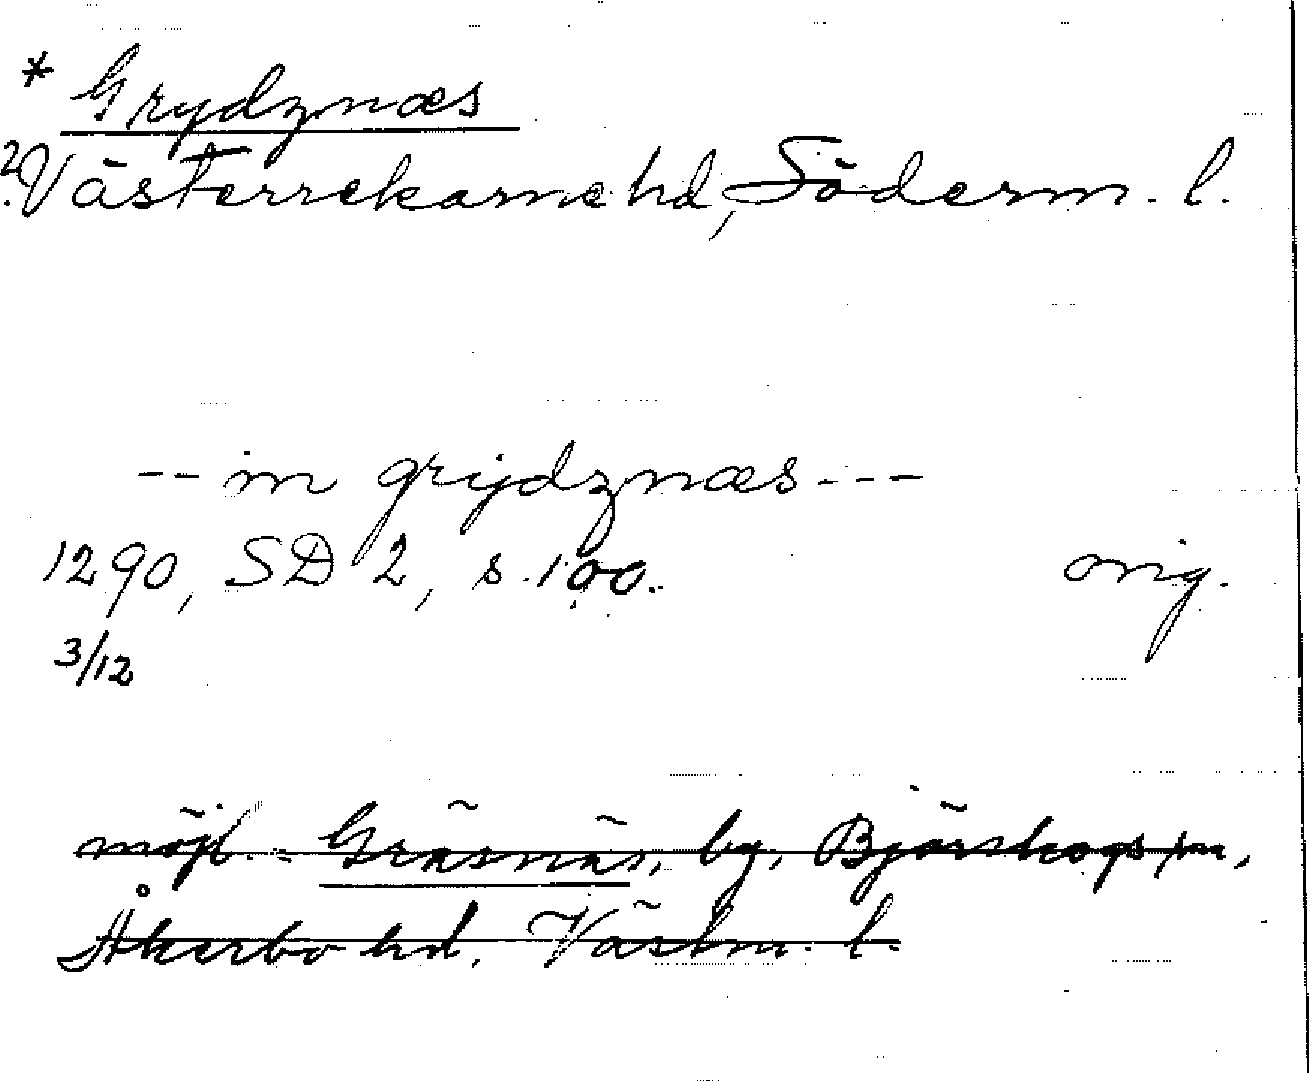 * Grydznæs
? Västerrekarne hd, Söderm. l.
-- in grijdznæs ---
1290, SD 2, s. 100. orig.
3/12
möjl. = Gräsnäs, by, Björskogs sn,
Åkerbo hd, Västm. l.